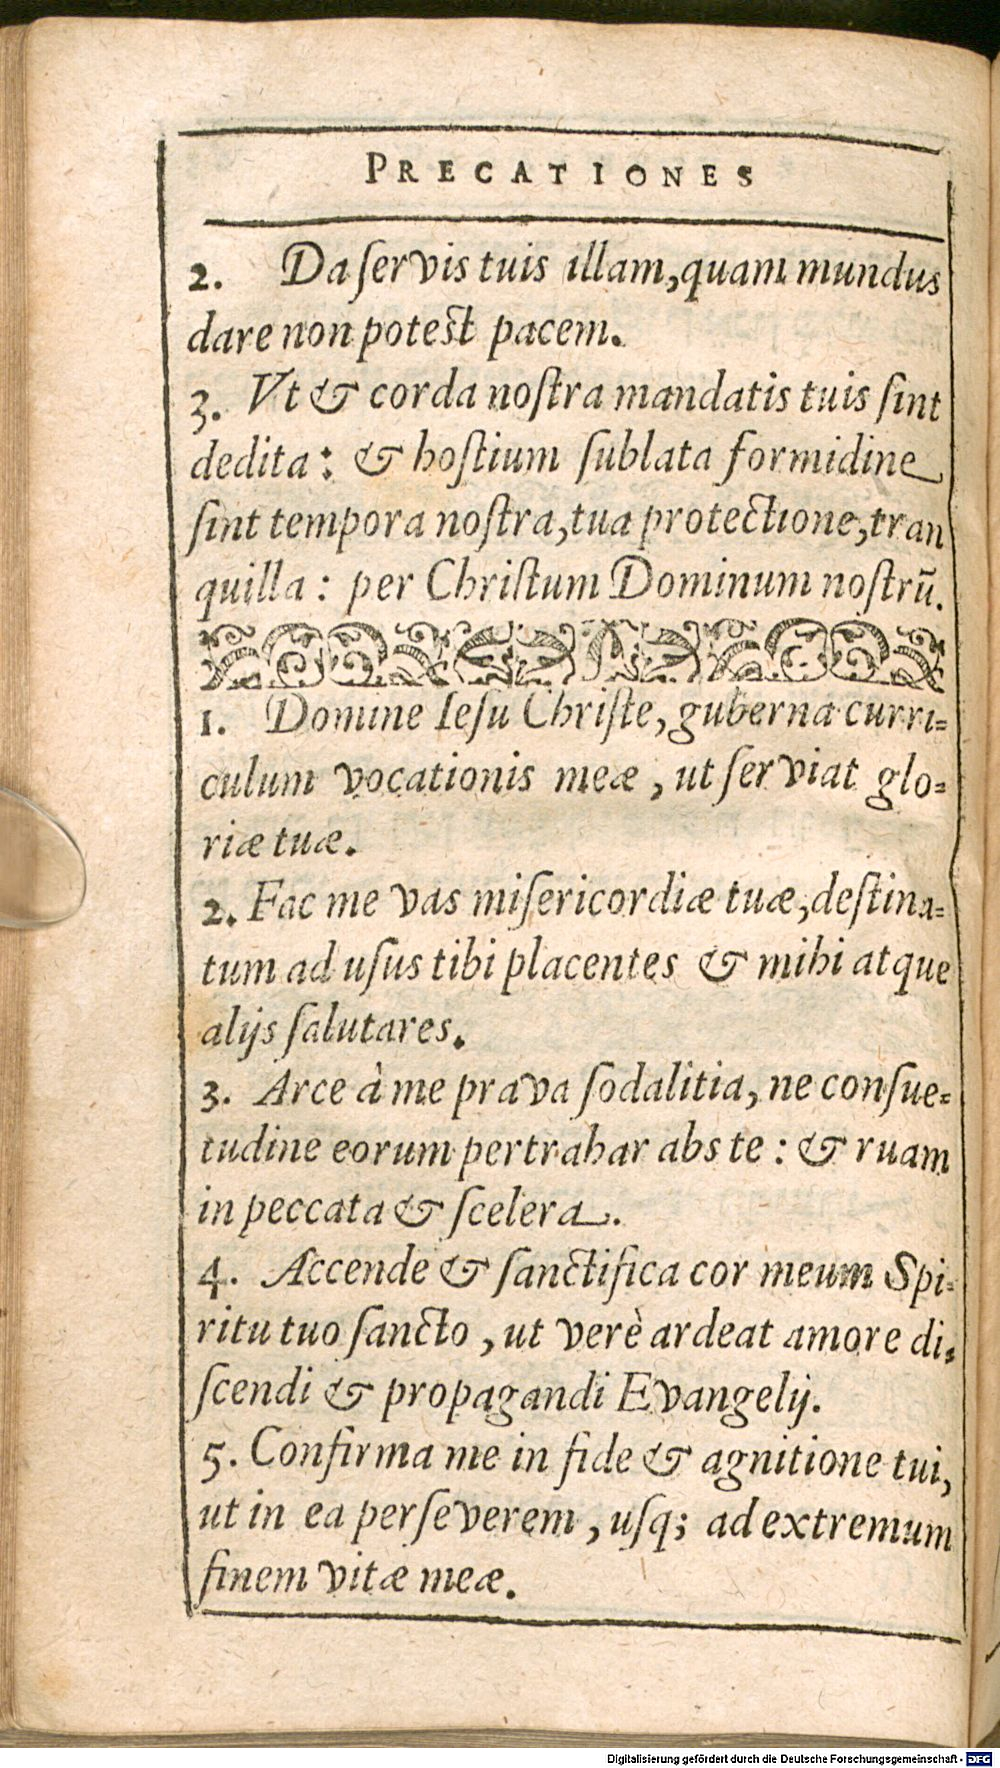 PRECATIONES
2. Da ſervis tuis illam, quam mundus
dare non poteſt pacem.
3. Vt & corda noſtra mandatis tuis ſint
dedita: & hoſtium ſublata formidine
ſint tempora noſtra, tua protectione, tran
quilla: per Chriſtum Dominum noſtrū.
1. Domine Ieſu Chriſte, guberna curri=
culum vocationis meæ, ut ſerviat glo=
riæ tuæ.
2. Fac me vas miſericordiæ tuæ, deſtina=
tum ad uſus tibi placentes & mihi atque
alijs ſalutares.
3. Arce à me prava ſodalitia, ne conſue=
tudine eorum pertrahar abs te: & ruam
in peccata & ſcelera.
4. Accende & ſanctifica cor meum Spi=
ritu tuo ſancto, ut verè ardeat amore di=
ſcendi & propagandi Evangelij.
5. Confirma me in fide & agnitione tui,
ut in ea perſeverem, uſq; ad extremum
finem vitæ meæ.
Digitalisierung gefördert durch die Deutsche Forschungsgemeinschaft - DFG